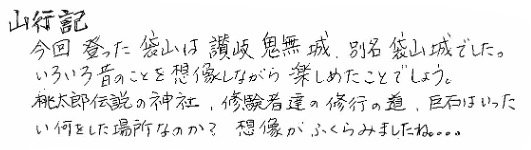 山行記
今回 登った 袋山は 讃岐 鬼無 城、別名 袋山城でした。
いろいろ昔のことを想像しながら 楽しめたことでしょう。
桃太郎伝説の神社、修験者達の修行の道、巨石はいった
い何をした場所なのか? 想像が ふくらみましたね....